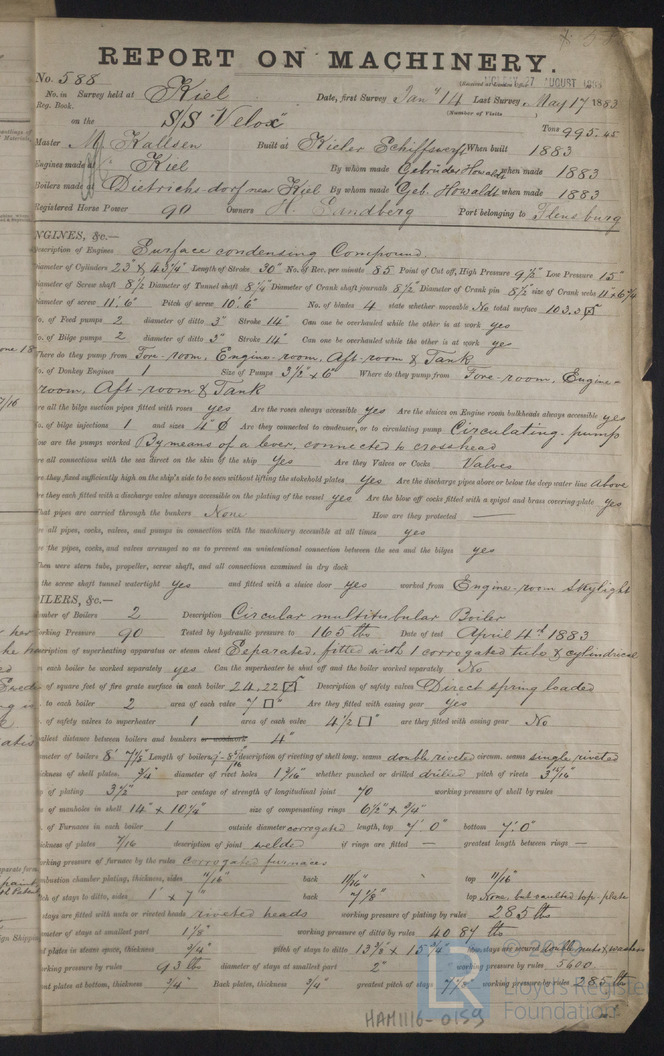 REPORT ON MACHINERY.
No. 588
No. in Survey held at Kiel Date, first Survey Jan. 14 Last Survey May 17 1883
Reg. Book. (Number of Visits
on the S/S Velox Tons 995.45
Master Kallsen Built at Kieler When built 1883
Engines made at Kiel By whom made Gebrüder Howaldt when made 1883
Boilers made at Dietrichsdorf near Kiel By whom made Geb. Howaldt when made 1883
Registered Horse Power 90 Owners H. Port belonging to Flensburg
NGINES, &c.—
Description of Engines Surface condensing Compound
Diameter of Cylinders 23" & 43¼" Length of Stroke 30" No. of Rev. per minute 85 Point of Cut off, High Pressure 9½" Low Pressure 15"
Diameter of Screw shaft 8½ Diameter of Tunnel shaft 8¼ Diameter of Crank shaft journals 8½" Diameter of Crank pin 8½" size of Crank webs 11 x 6¼
Diameter of screw 11'.6" Pitch of screw 10'.6" No. of blades 4 state whether moveable No total surface 103.5
No. of Feed pumps 2 diameter of ditto 3" Stroke 14" Can one be overhauled while the other is at work yes
No. of Bilge pumps 2 diameter of ditto 3" Stroke 14" Can one be overhauled while the other is at work yes
Where do they pump from Fore-room, Engine-room, Aft-room & Tank
No. of Donkey Engines 1 Size of Pumps 3½" x 6" Where do they pump from Fore-room, Engine-
room, Aft-room & Tank
re all the bilge suction pipes fitted with roses yes Are the roses always accessible yes Are the sluices on Engine room bulkheads always accessible yes
o. of bilge injections 1 and sizes 4" Are they connected to condenser, or to circulating pump Circulating pump
ow are the pumps worked By means of a lever, connected to crosshead
re all connections with the sea direct on the skin of the ship Yes Are they Valves or Cocks Valves
re they fixed sufficiently high on the ship's side to be seen without lifting the stokehold plates yes Are the discharge pipes above or below the deep water line above
re they each fitted with a discharge valve always accessible on the plating of the vessel yes Are the blow off cocks fitted with a spigot and brass covering-plate yes
hat pipes are carried through the bunkers None How are they protected —
re all pipes, cocks, valves, and pumps in connection with the machinery accessible at all times yes
re the pipes, cocks, and valves arranged so as to prevent an unintentional connection between the sea and the bilges yes
hen were stern tube, propeller, screw shaft, and all connections examined in dry dock
the screw shaft tunnel watertight yes and fitted with a sluice door yes worked from Engine-room Skylight
OILERS, &c.—
umber of Boilers 2 Description Circular multitubular Boiler
orking Pressure 90 Tested by hydraulic pressure to 165 lbs Date of test April 4th 1883
escription of superheating apparatus or steam chest Separated, fitted with 1 corrogated tube & cylindrical
n each boiler be worked separately yes Can the superheater be shut off and the boiler worked separately No
. of square feet of fire grate surface in each boiler 24.22 Description of safety valves Direct spring loaded
. to each boiler 2 area of each valve 7 □" Are they fitted with easing gear yes
. of safety valves to superheater 1 area of each valve 4½ □" are they fitted with easing gear No
allest distance between boilers and bunkers or woodwork 4"
ameter of boilers 8' 7⅞ Length of boilers description of riveting of shell long. seams double riveted circum. seams single riveted
ickness of shell plates ¾" diameter of rivet holes 1 3/16" whether punched or drilled drilled pitch of rivets 3 11/16"
p of plating 3½" per centage of strength of longitudinal joint 70 working pressure of shell by rules
e of manholes in shell 14" x 10¼" size of compensating rings 6½" x ¾"
. of Furnaces in each boiler 1 outside diameter corrogated length, top 7'.0" bottom 7'.0"
ickness of plates 7/16 description of joint welded if rings are fitted — greatest length between rings —
orking pressure of furnace by the rules corrogated furnaces
ombustion chamber plating, thickness, sides 11/16" back 11/16" top 11/16"
ch of stays to ditto, sides 1' x 7" back 7⅞" top None, but vaulted top-plate
stays are fitted with nuts or riveted heads riveted heads working pressure of plating by rules 285 lbs
ameter of stays at smallest part 1⅛" working pressure of ditto by rules 4087 lbs
d plates in steam space, thickness ¾" pitch of stays to ditto 13½ x 15¼" how stays are secured double nuts & washers
orking pressure by rules 93 lbs diameter of stays at smallest part 2" working pressure by rules 5600
ont plates at bottom, thickness ¾" Back plates, thickness ¾" greatest pitch of stays 7⅞" working pressure by rules 285 lbs
Lloyd's Register
Foundation
HAM1116-0159